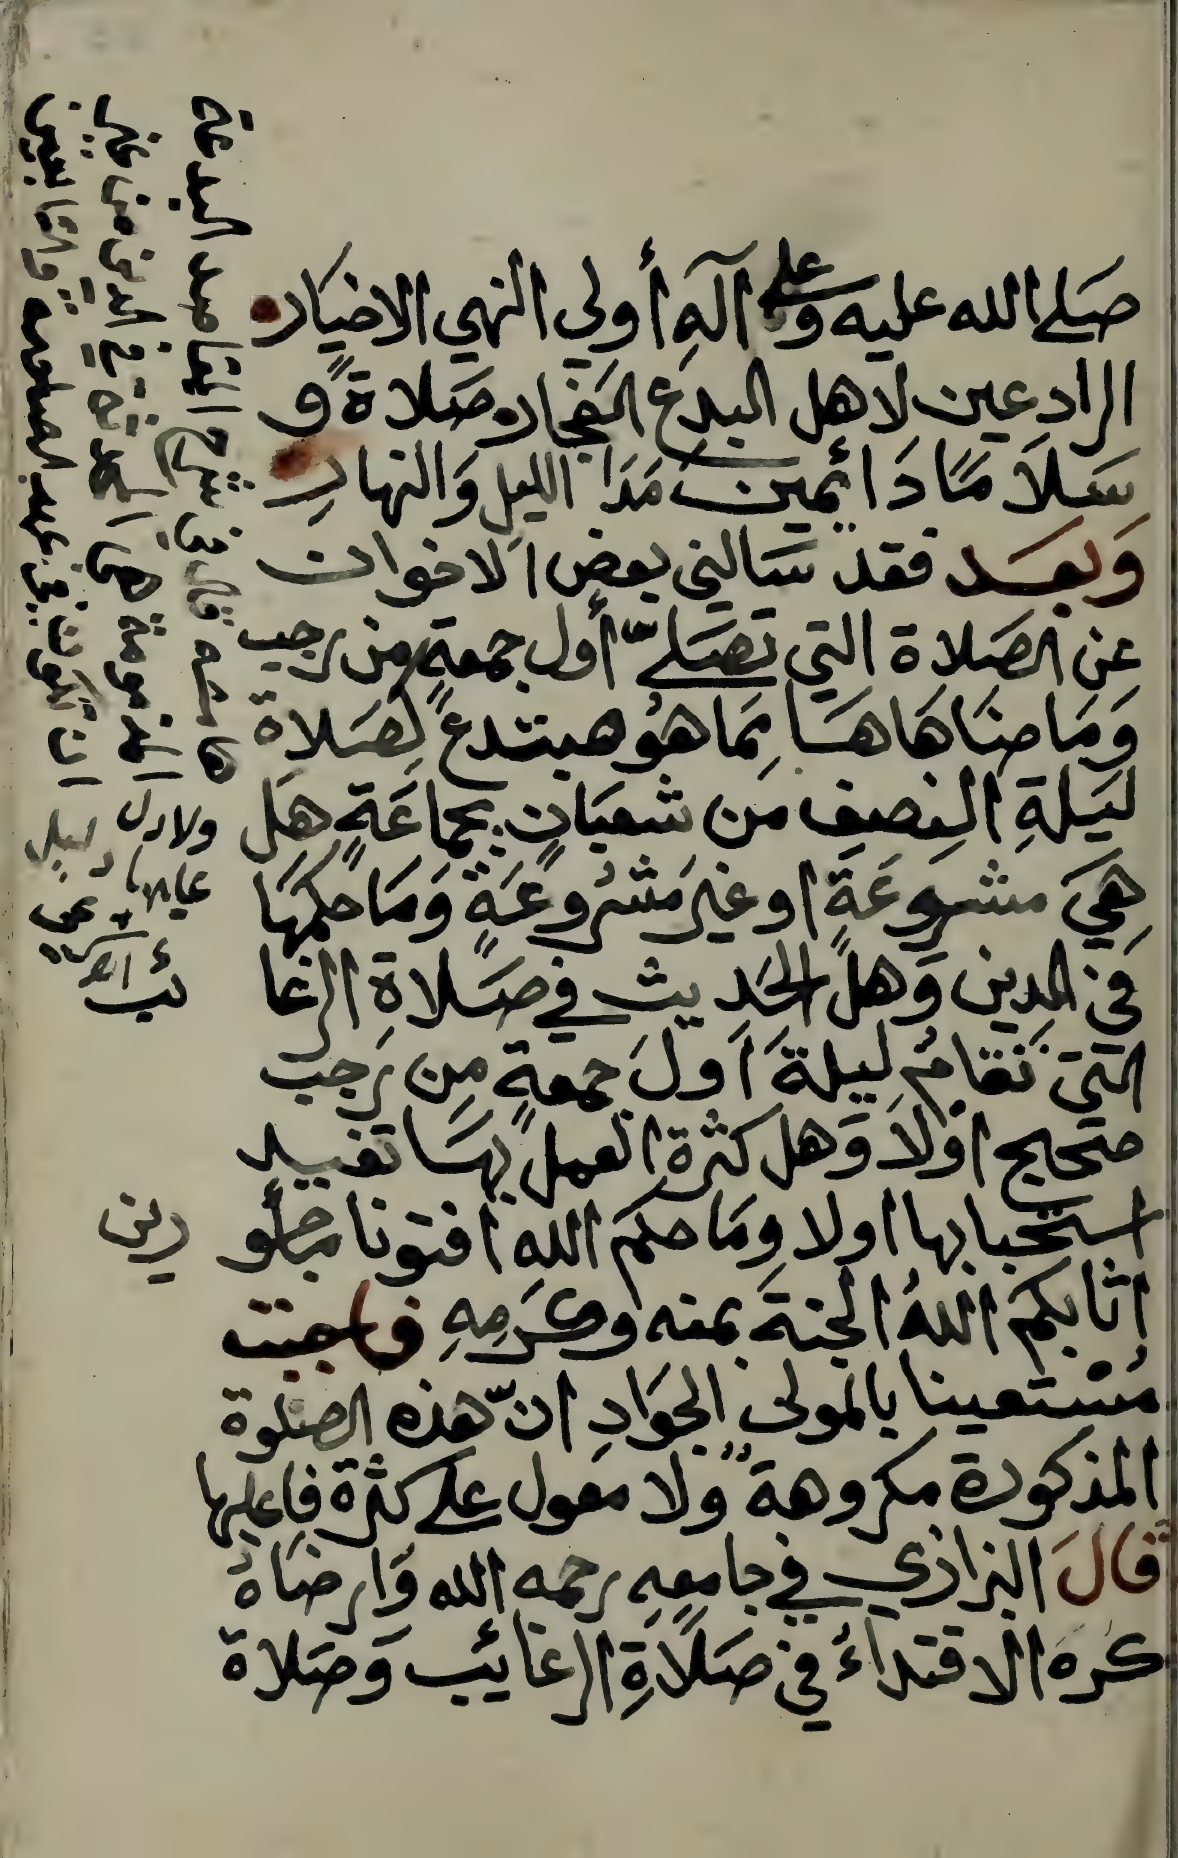 صَلے الله عليه وعلے آلهِ أولي النهي الاخيار
الرادعين لاهل البدع الفجار صَلاةً و
سَلاَمًا دَائمين مَدَا الليل وَالنهارِ
وَبعَد فقد سَالني بعض الاخوان
عن الصَلاة التي تصَلےّ أول جمعةٍ من رجب
وَمَا ضاهَاهَا مِمَا هُو مبتدع لصَلاة
ليَلةِ النِصفِ من شعبَانٍ بجماعَةٍ هَل
هِيَ مشروعَة او غيرَ مَشرُوعَةٍ وَمَا حكمهَا
في الدين وَهل الحَديث في صَلاة الرغا
التي تقامُ ليلةَ اَولَ جمعةٍ مِن رَجب
صَحيح اوْلاَ وَهل كثرة العمل بهَا تفيد
استحبابها اولا ومَا حكم الله افتونا مأجو
رين
اثابكم اللهُ الجنةَ بمنه وكرَمِهِ فاجبت
مُستعينا بالمولى الجوَادِ انّ هذه الصلوة
المذكورة مكروهة ولا معول علے كثرة فاعليها
قالَ البزازي في جامعِهِ رحمه الله وَارضَاهُ
كرهَ الاقتداءُ في صَلاَةِ الرغائب وَصَلاة
ئب
البدعة
المذمومة هي المحدثة في الدين من غير
ان تكون في عهد الصحابة والتابعين
ولا دل
عليها دليل